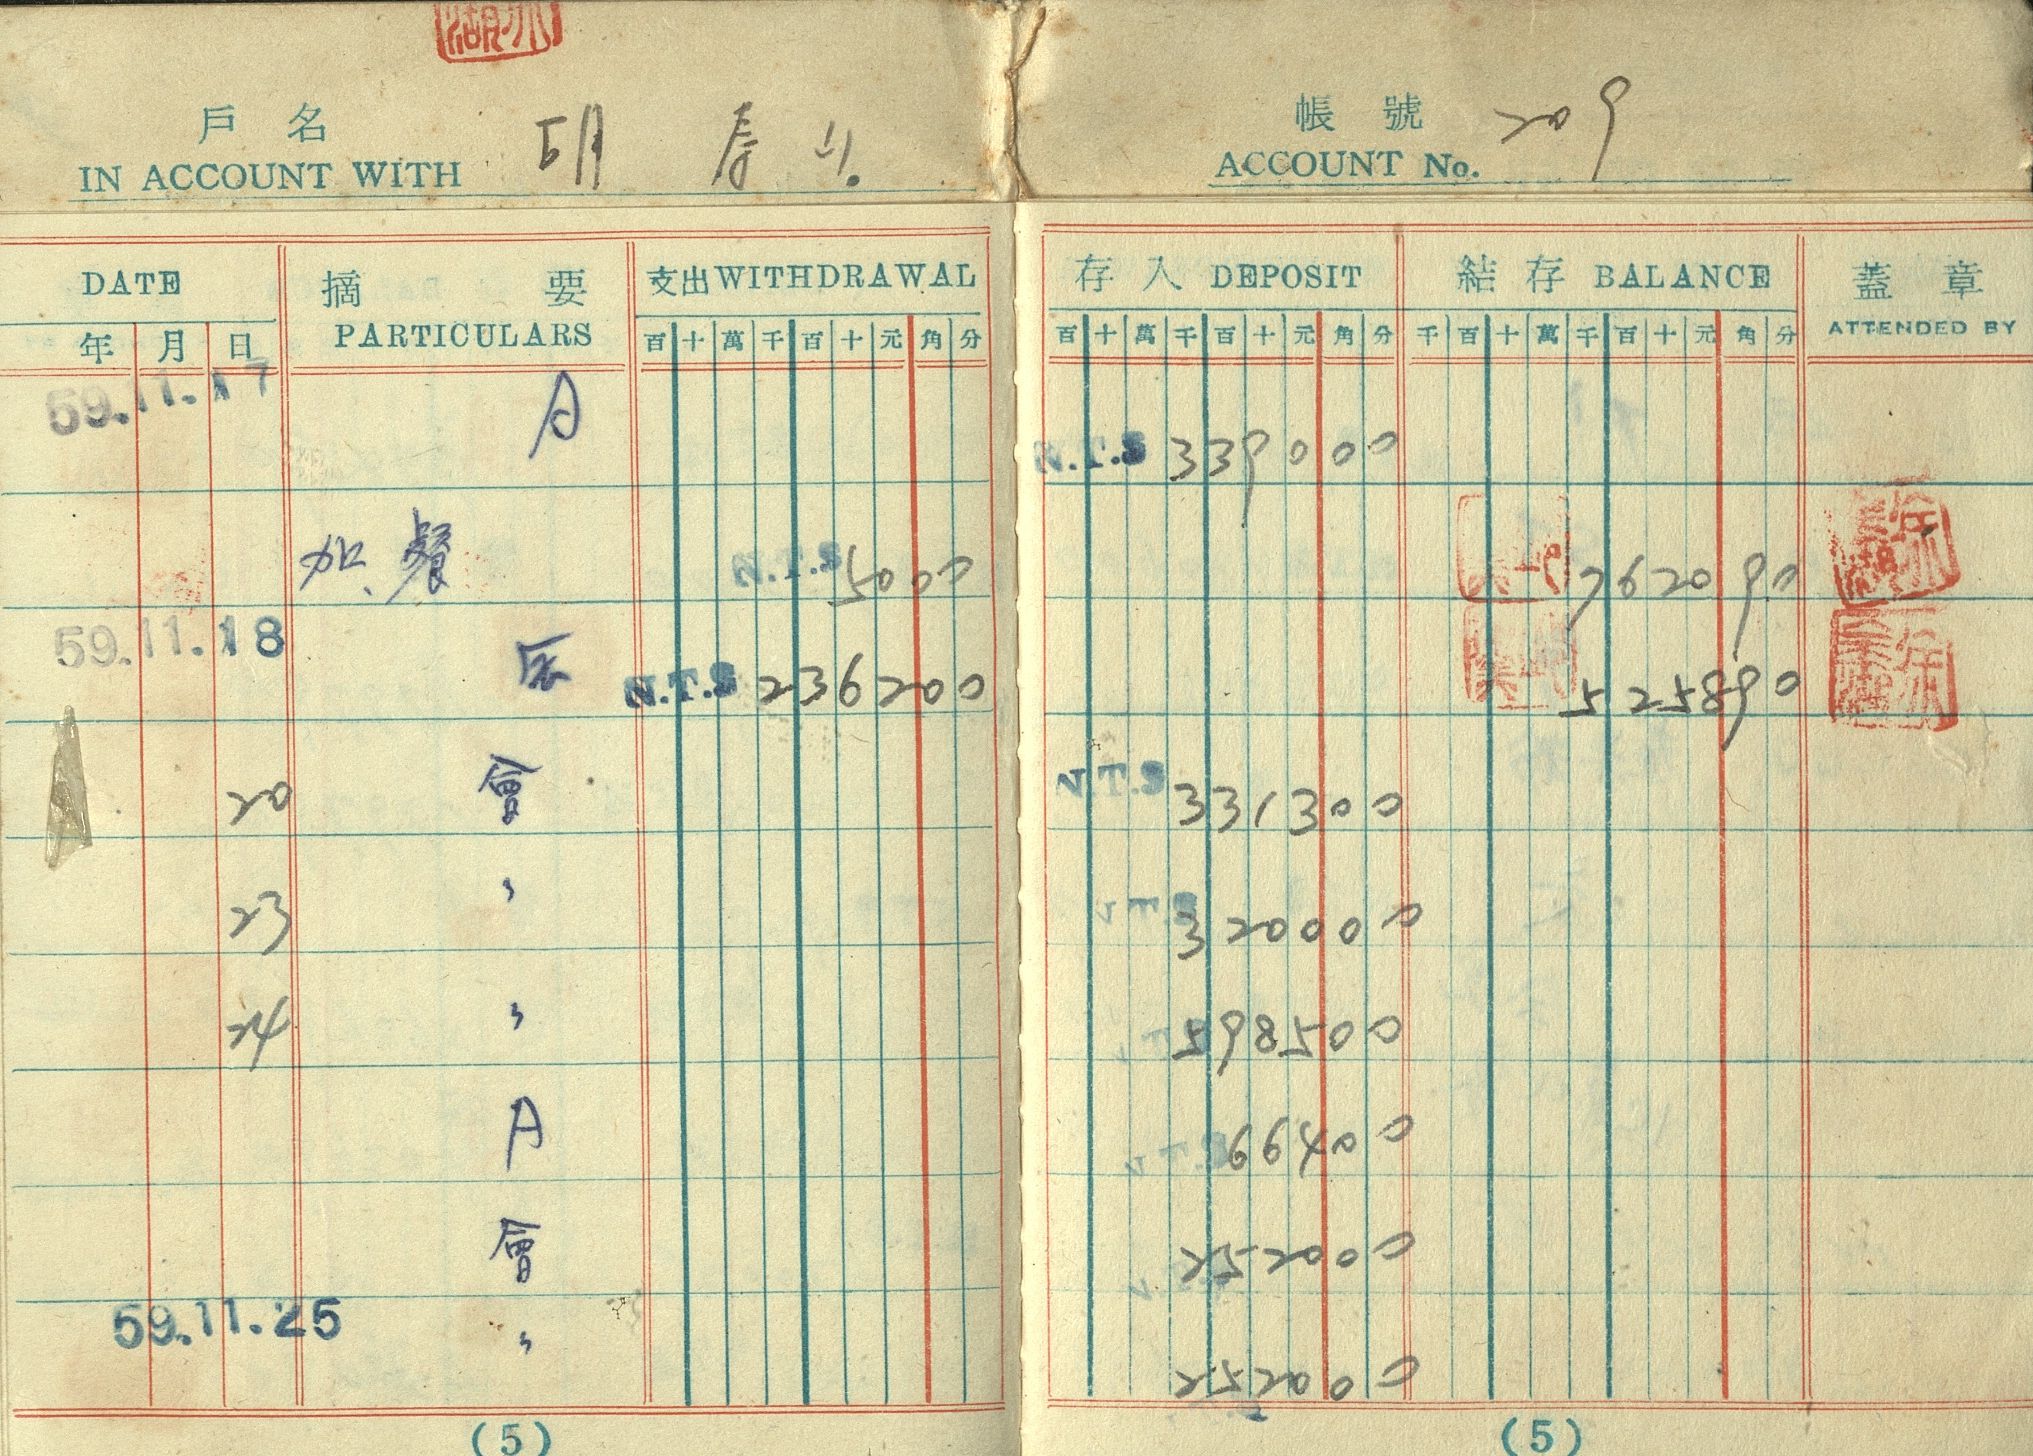 戶名
IN ACCOUNT WITH 胡
帳號
ACCOUNT No. 209
DATE 摘要 支出 WITHDRAWAL 存入 DEPOSIT 結存 BALANCE 蓋章
年 月 日 PARTICULARS 百 十 萬 千 百 十 元 角 分 百 十 萬 千 百 十 元 角 分 千 百 十 萬 千 百 十 元 角 分 ATTENDED BY
59.11.17 A N.T.$ 339000
加餐 N.T.$ 5000 762090
59.11.18 N.T.$ 236200 525890
20 會 N.T.$ 331300
23 〃 320000
24 〃 598500
A 66400
會 252000
59.11.25 〃 252000
(5) (5)